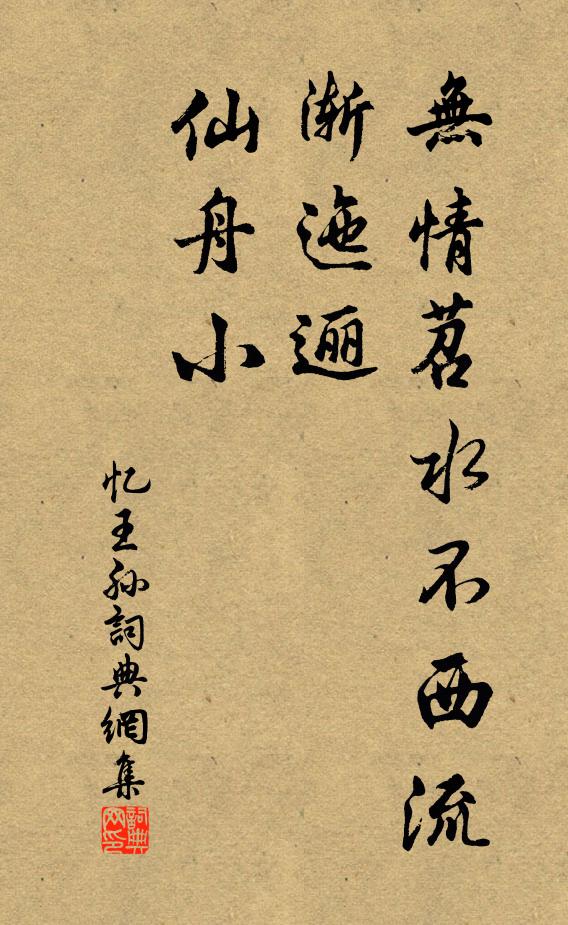 無情苕水不西流
漸迤逦
仙舟小
忆王孙詞典網集
詞典網印